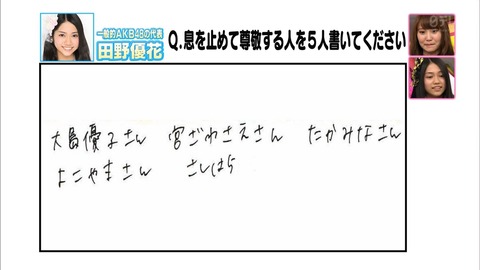 一般的AKB48の代表
田野優花
Q.息を止めて尊敬する人を5人書いてください
日テレ
大島優子さん 宮ざわさえさん たかみなさん
よこやまさん さしはら